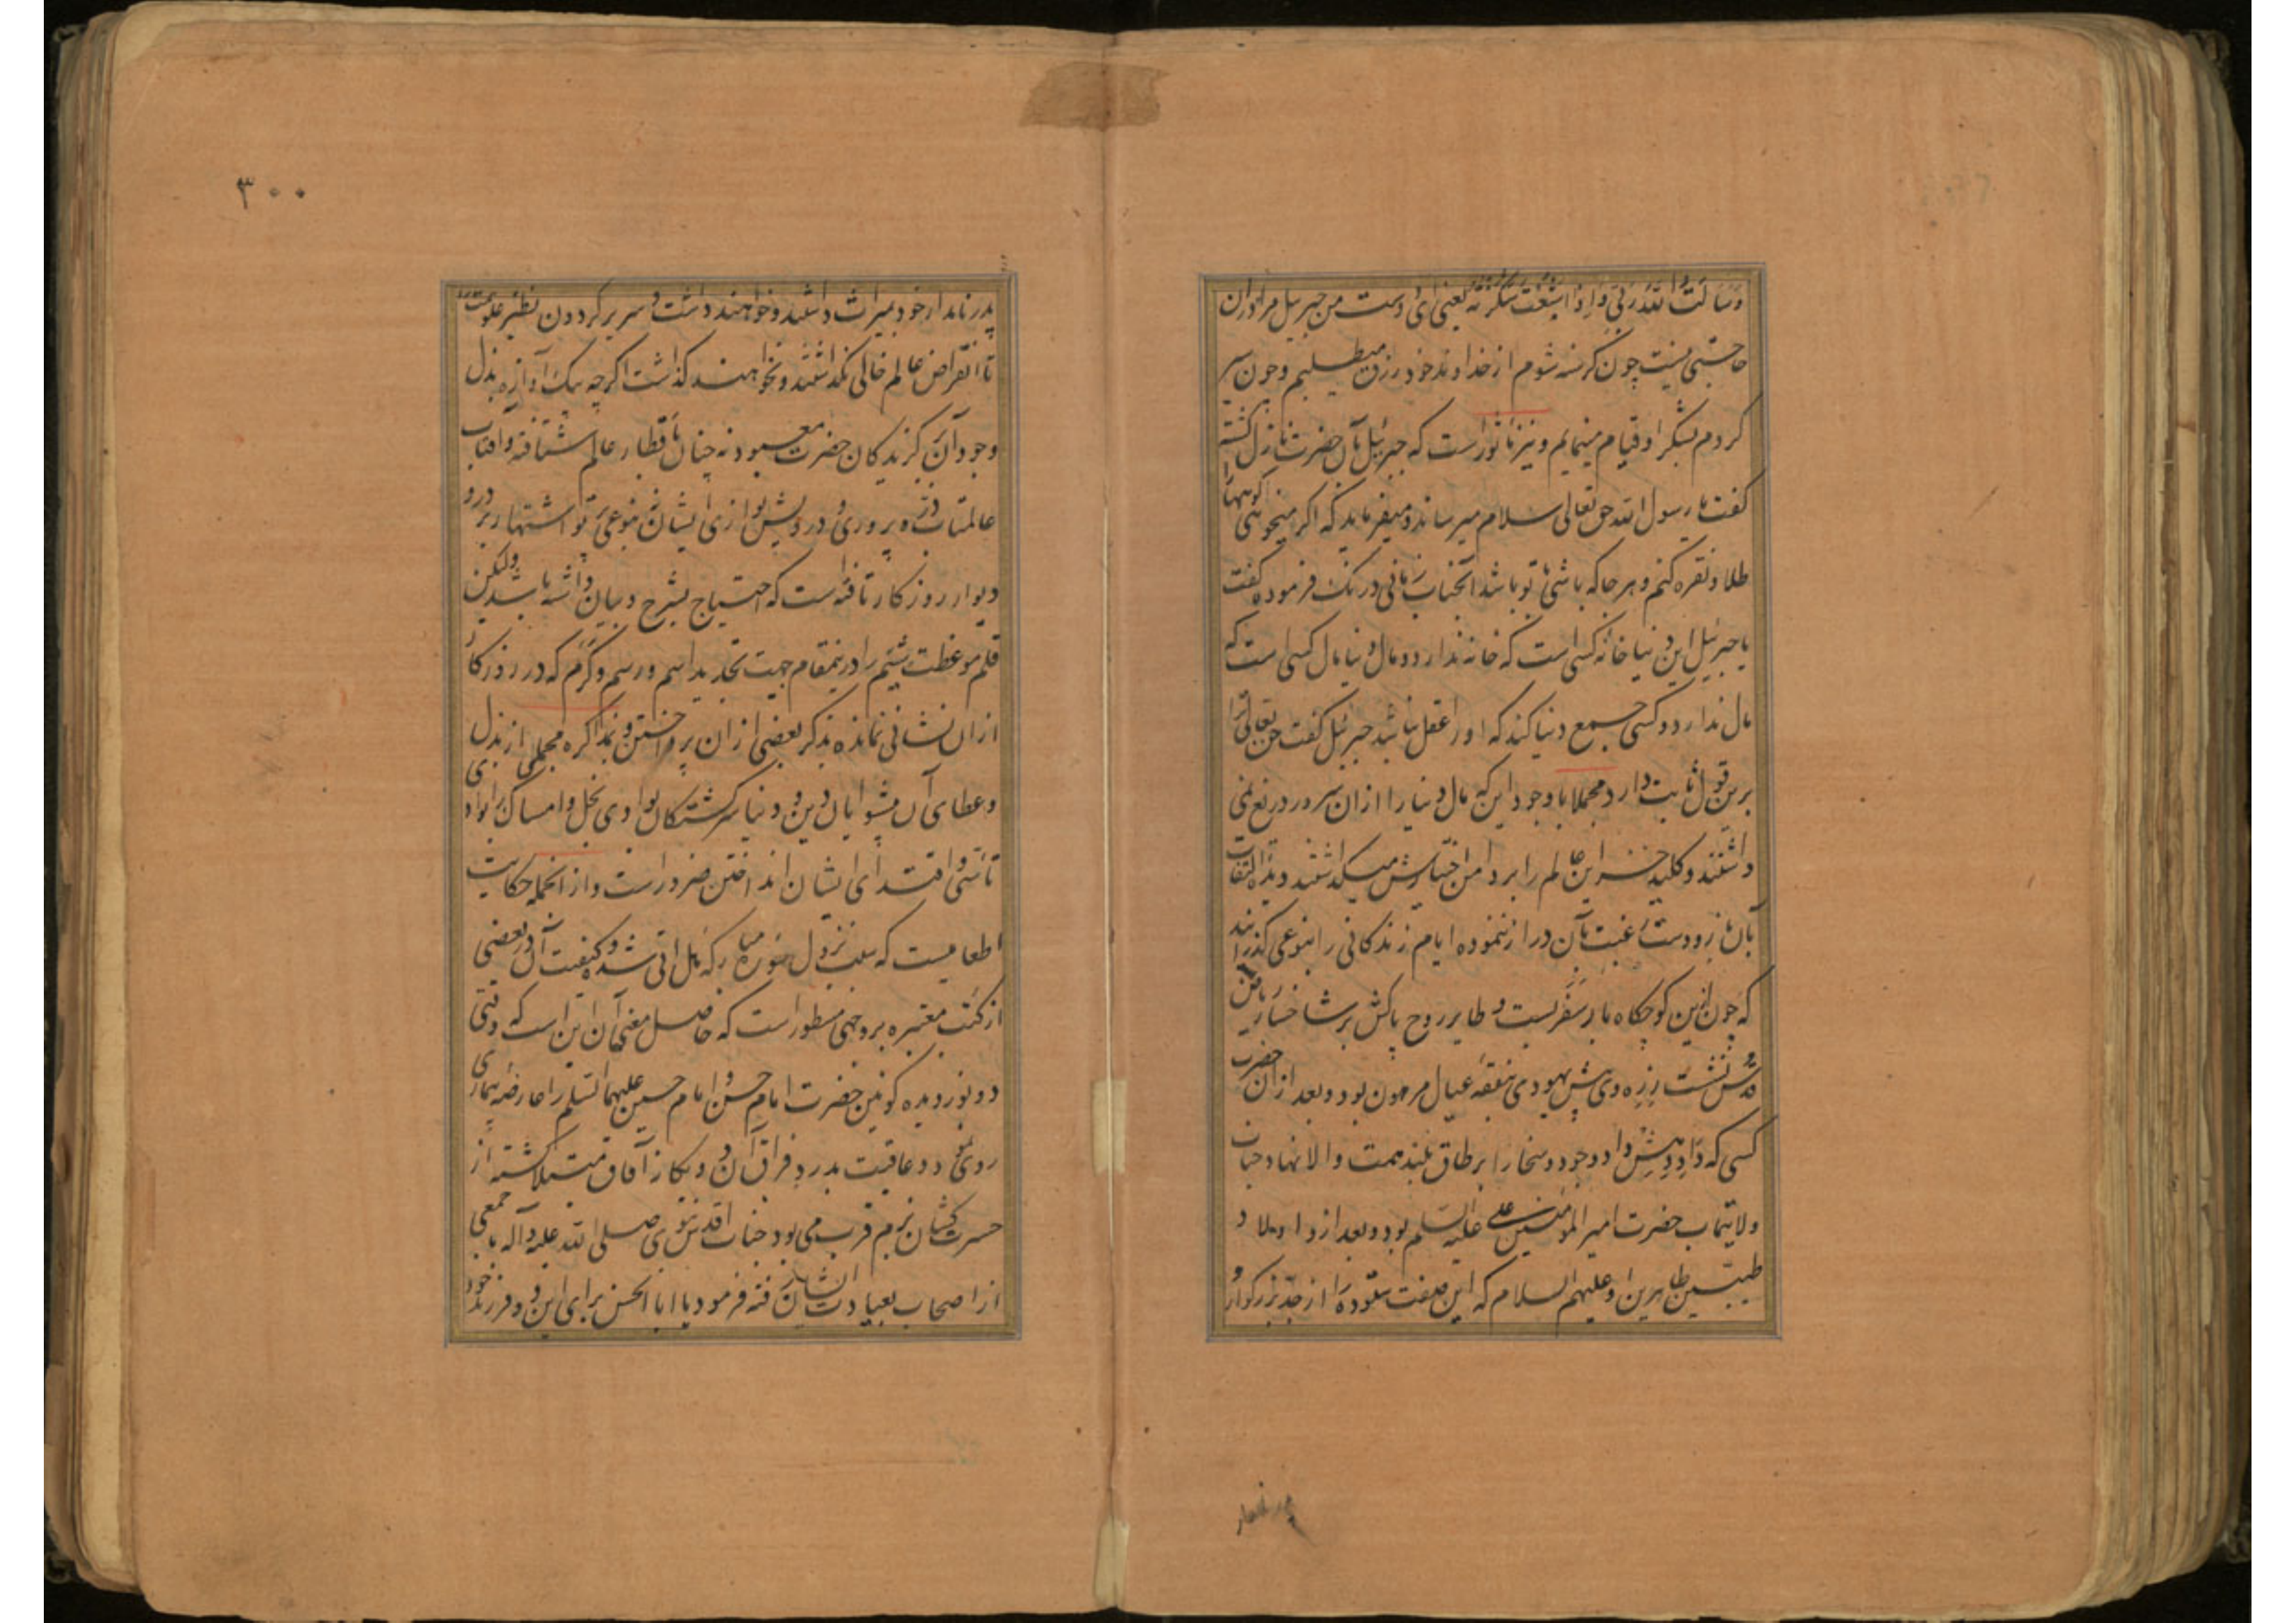 وسالت الله ربی و اذا شبعت شکرته یعنی ای دوست من جبرییل مرا دران
حاجتی نیست چون گرسنه شوم از خداوند خود رزق میطلبم و چون سیر
کردم بشکر او قیام مینمایم و نیز ماثور است که جبرئیل بآن حضرت نازل گشته
گفت یا رسول الله حق تعالی سلام میرساند و میفرماید که اگر میخواهی کوهها را
طلا و نقره کنم و هر جا که باشی با تو باشد آنجناب زمانی درنک فرموده گفت
یا جبرئیل این دنیا خانه کسی است که خانه ندارد و مال دنیا مال کسی است که
مال ندارد و کسی جمع دنیا کند که او را عقل نباشد جبرئیل گفت حق تعالی ترا
برین قول ثابت دارد مجملا با وجود این که مال دنیا را ازان سرور دریغ نمی
داشتند و کلید خزاین عالم را بر دامن اختیارش میگذاشتند دیده التفات
بآن باز و دست رغبت بآن دراز ننموده ایام زندگانی را بنوعی گذرانید
که چون ازین کوچگاه بار سفر بست و طایر روح پاکش بر شاخسار ریاض
قدس نشست زره وی پیش یهودی بنفقه عیال مرهون بود و بعد ازان حضرت
کسی که داد دهش داد و جود و سخا را بر طاق بلند همت والا نهاد جناب
ولایتماب حضرت امیر المومنین علی علیه السلم بود و بعد ازو اولاد
طیبین طاهرین او علیهم السلام که این صفت ستوده را از جد بزرگوار و
پدر نامدار
۳۰۰
پدر نامدار خود بمیراث داشتند و خواهند داشت و سریر گردون نظیر علو همت را
تا انقراض عالم خالی نگذاشتند و نخواهند گذاشت اگرچه نیک آوازه بذل
وجود آن برگزیدگان حضرت معبود نه چنان باقطار عالم شتافته و آفتاب
عالمتاب ذره پروری و درویش نوازی ایشان بنوعی پرتو اشتهار بر در و
دیوار روزگار تافته است که احتیاج بشرح و بیان داشته باشد ولیکن
قلم موعظت شیم را درینمقام جهت تجدید اسم و رسم وکرم که در روزگار
ازان نشانی نمانده بذکر بعضی ازان پرداختن و بمذاکره مجملی از بذل
و عطای آن پیشوایان دین و دنیا سرگشتگان بوادی بخل و امساک را بوادی
تاسی و اقتدای ایشان انداختن ضرور است و ازانجمله حکایت
اطعامیست که سبب نزول سوره مبارکه هل اتی شده و کیفیت آن در بعضی
از کتب معتبره بر وجهی مسطور است که حاصل معنی آن اینست که وقتی
دو نور دیده کونین حضرت امام حسن و امام حسین علیهما السلم را عارضه بیماری
روی نمود و عافیت بدرد فراق آن دو یگانه آفاق مبتلا گشته از
حسرت کشان بزم قرب می بود جناب اقدس نبوی صلی الله علیه و آله با جمعی
از اصحاب بعیادت ایشان رفته فرمود یا ابا الحسن برای این دو فرزند خود